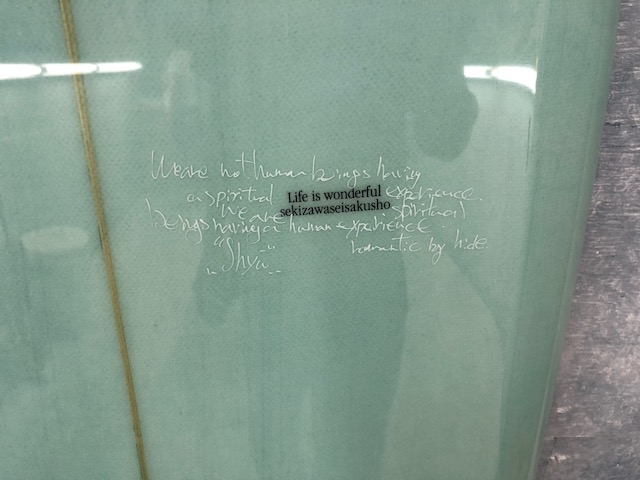 We are not human beings having
a spiritual experience.
Life is wonderful
sekizawaseisakusho
We are spiritual
beings having a human experience.
"Shyu"
romantic by hide.